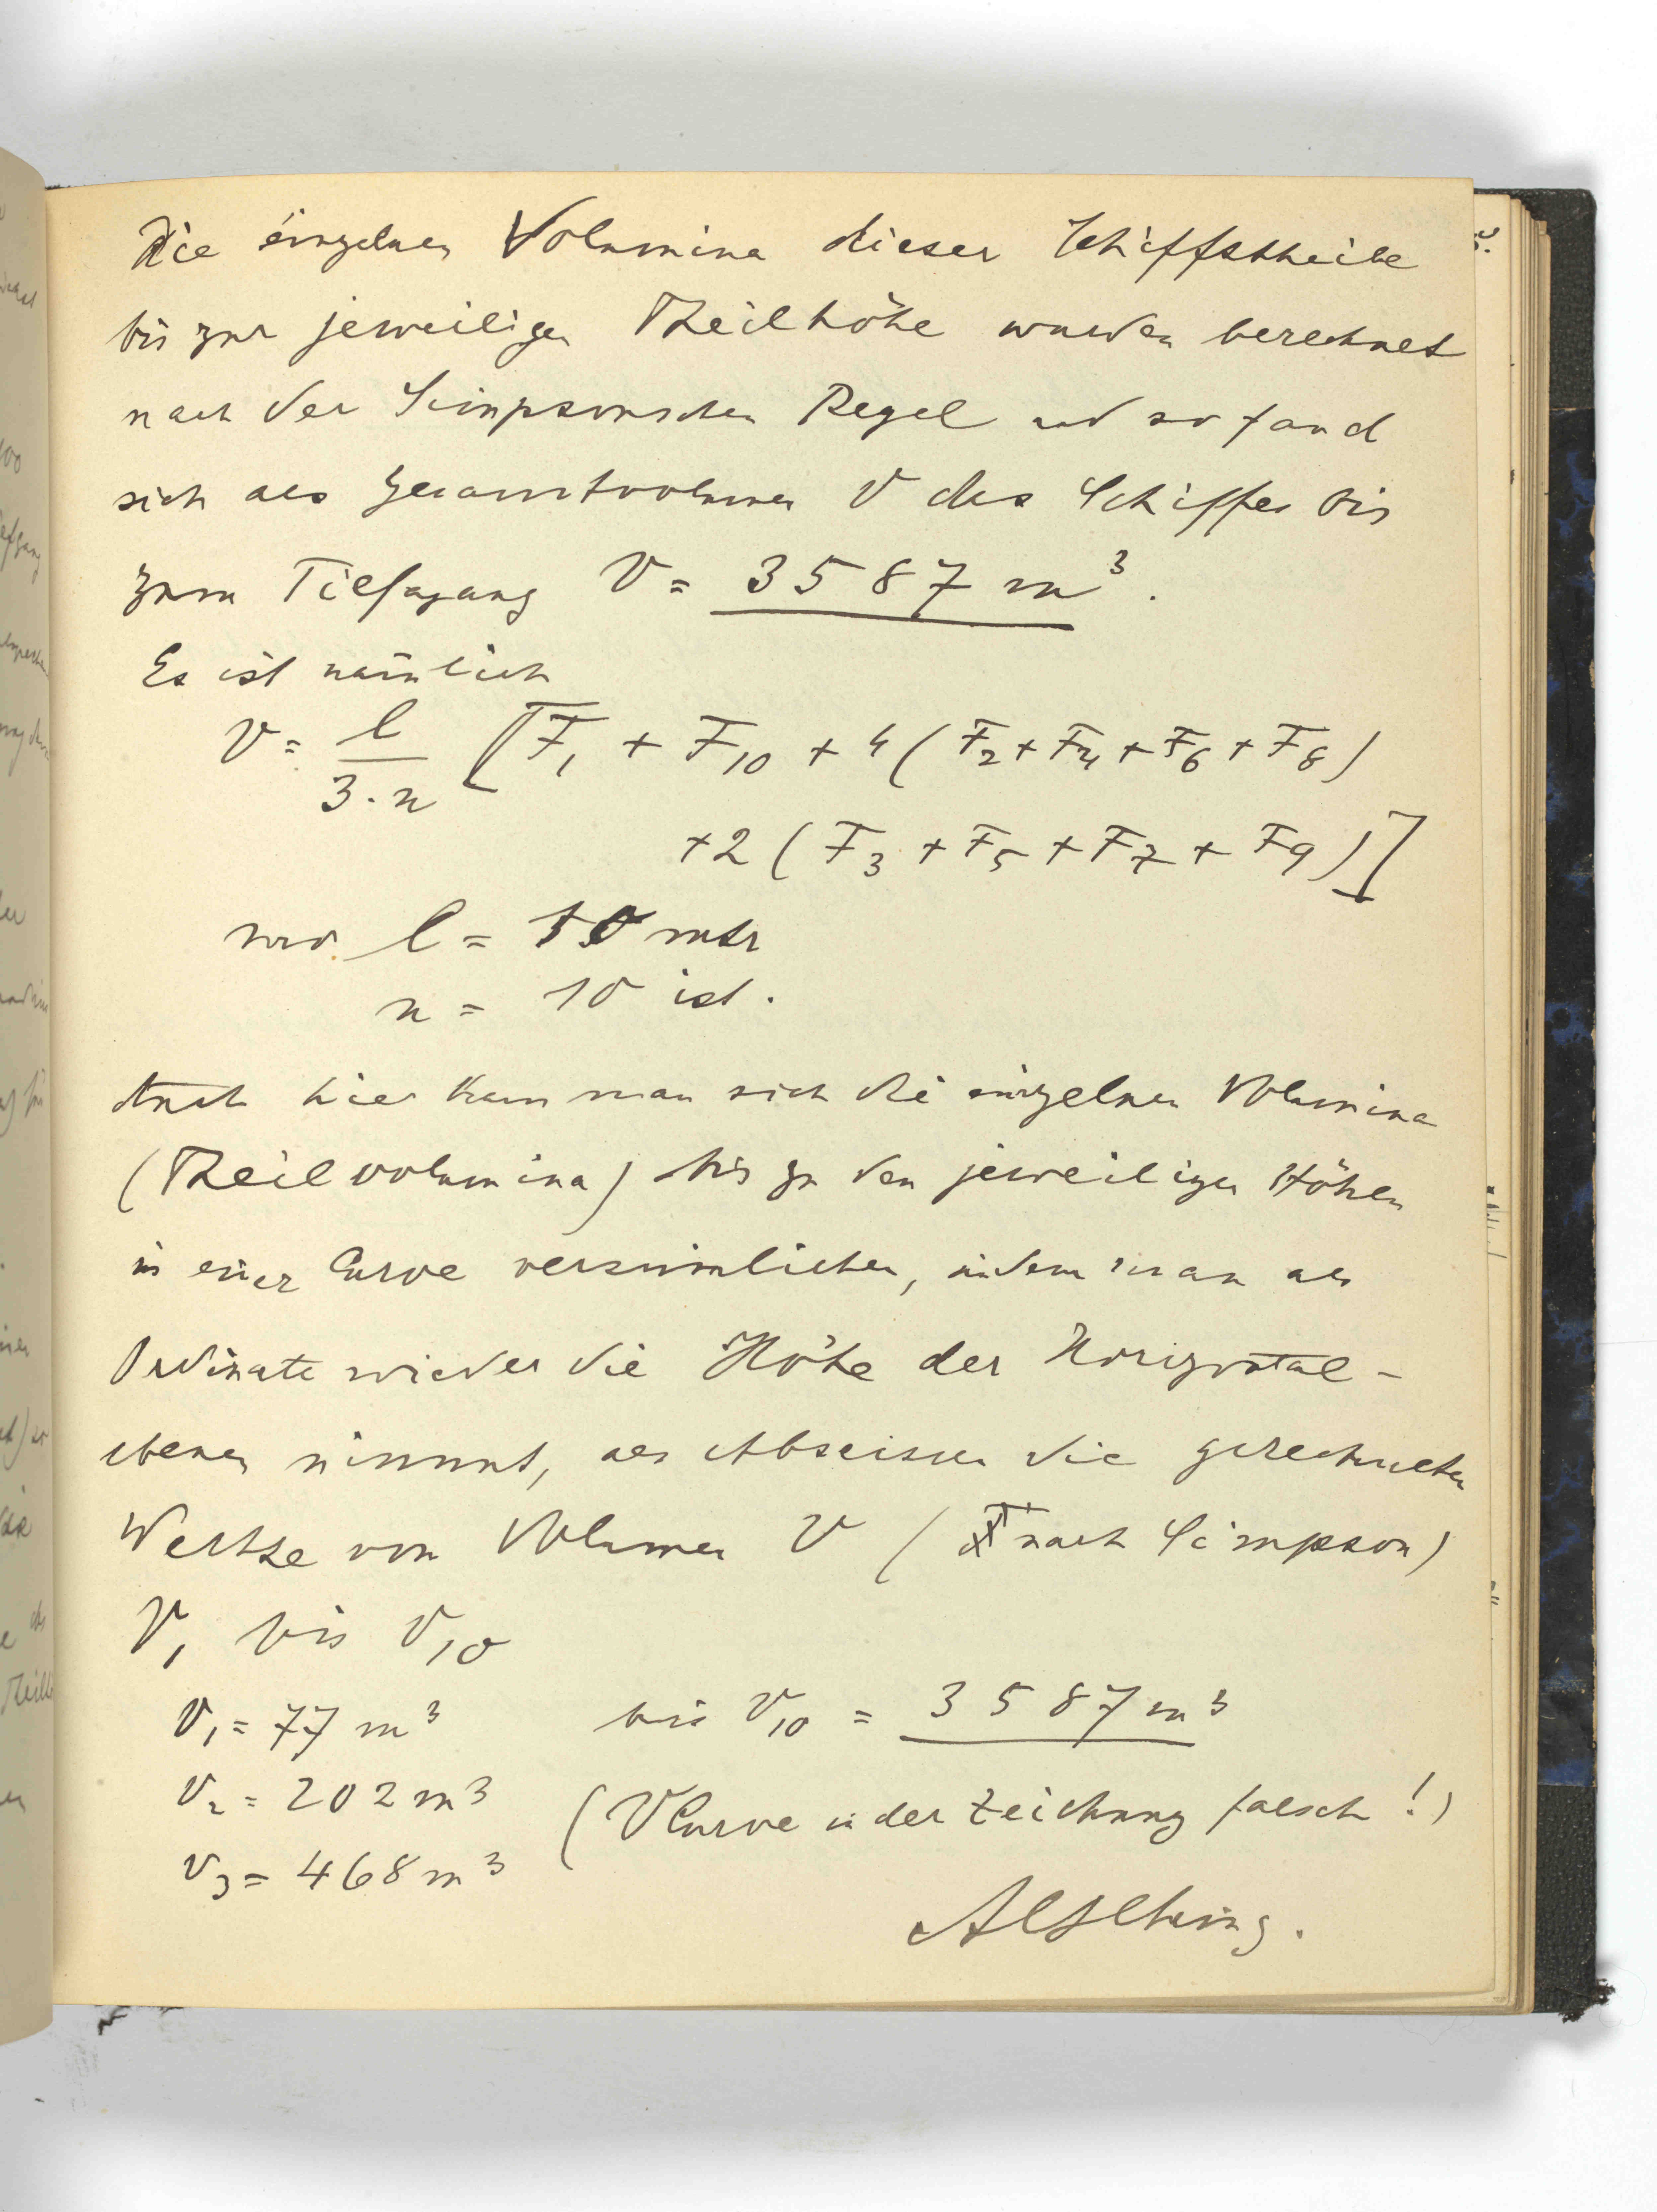 Die einzelnen Volumina dieser Schiffstheile
bis zur jeweiligen Theilhöhe wurden berechnet
nach der Simpsonschen Regel und so fand
sich als Gesamtvolumen V des Schiffes bis
zum Tiefgang V = 3587 m³.
Es ist nämlich
V = l / 3·n [F₁ + F₁₀ + 4 (F₂ + F₄ + F₆ + F₈)
+ 2 (F₃ + F₅ + F₇ + F₉)]
wo l = mtr
n = 10 ist.
Auch hier kann man sich die einzelnen Volumina
(Theilvolumina) bis zu den jeweiligen Höhen
in einer Curve versinnlichen, indem man als
Ordinate wieder die Höhe der Horizontal-
ebenen nimmt, als Abscissen die gerechneten
Werthe vom Volumen V ( nach Simpson)
V₁ bis V₁₀
V₁ = 77 m³ bis V₁₀ = 3587 m³
V₂ = 202 m³ (V Curve in der Zeichnung falsch!)
V₃ = 468 m³